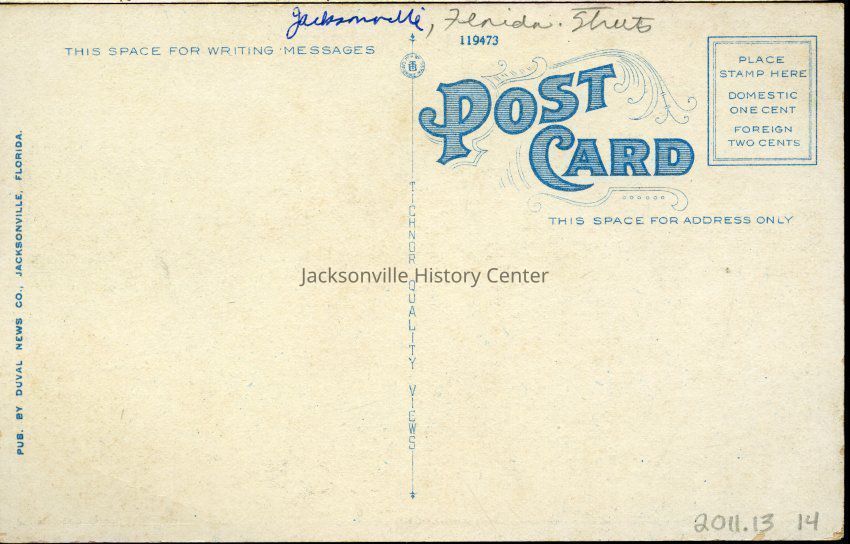 Jacksonville, Florida. Streets
THIS SPACE FOR WRITING MESSAGES
119473
POST CARD
PLACE
STAMP HERE
DOMESTIC
ONE CENT
FOREIGN
TWO CENTS
THIS SPACE FOR ADDRESS ONLY
PUB. BY DUVAL NEWS CO., JACKSONVILLE, FLORIDA.
TICHNOR QUALITY VIEWS
Jacksonville History Center
2011.13 14